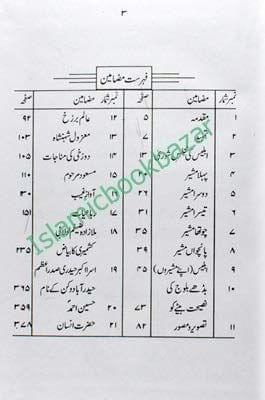 ۳
فہرست مضامین
نمبر شمار مضامین صفحہ
۱ مقدمہ ۵
۲ ۷
۳ ابلیس کی مجلس شوریٰ ۱۳
۴ پہلا مشیر
۵ دوسرا مشیر ۲۶
۶ تیسرا مشیر ۳۱
۷ چوتھا مشیر ۳۵
۸ پانچواں مشیر ۳۹
۹ ابلیس (اپنے مشیروں) ۴۵
۱۰ بڈھے بلوچ کی
نصیحت بیٹے کو ۷۳
۱۱ تصویر و مصور ۸۲
نمبر شمار مضامین صفحہ
۱۲ عالم برزخ ۹۲
۱۳ معزول شہنشاہ ۱۰۳
۱۴ دوزخی کی مناجات ۱۰۵
۱۵ مسعود مرحوم ۱۱۰
۱۶ آواز غیب
۱۷ رباعیات ۱۵۱
۱۸ ملا زادہ ضیغم لولابی
کشمیری کا بیاض ۲۳۵
۱۹ سر اکبر حیدری صدر اعظم
حیدرآباد دکن کے نام ۳۶۵
۲۰ حسین احمد ۳۵۹
۲۱ حضرت انسان ۳۷۸
Islamicbookbazar